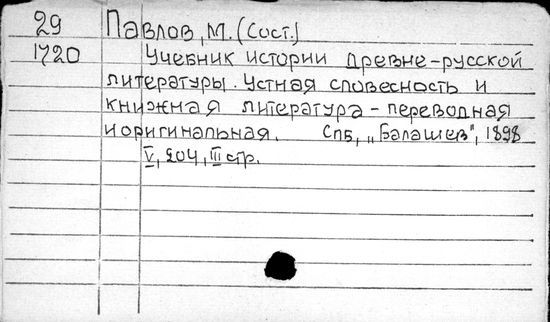 29 Павлов, М. (Сост.)
1720 Учебник истории древне-русской
литературы. Устная словесность и
книжная литература - переводная
и оригинальная. Спб, „Балашев", 1898
V, 204, III стр.